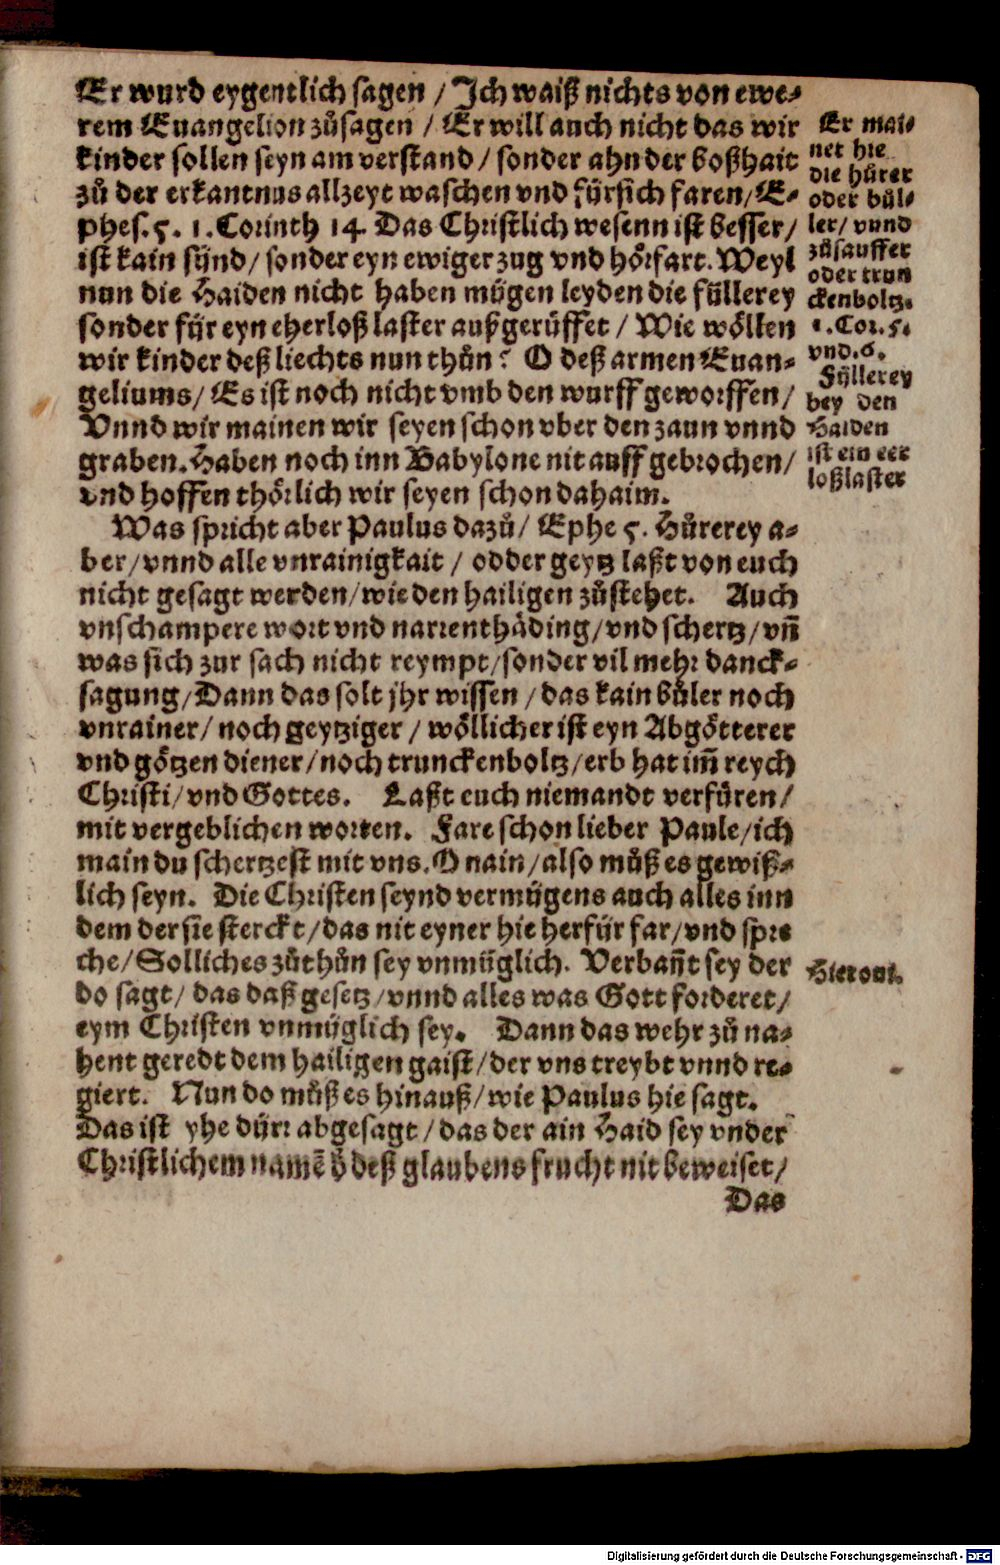 Er wurd eygentlich sagen / Ich waiß nichts von ewe⸗
rem Euangelion zůsagen / Er will auch nicht das wir
kinder sollen seyn am verstand / sonder ahn der boßhait
zů der erkantnus allzeyt waschen vnd fürsich faren / E⸗
phes. 5. 1. Corinth 14. Das Christlich wesenn ist besser /
ist kain sünd / sonder eyn ewiger zug vnd hörfart. Weyl
nun die Haiden nicht haben mügen leyden die füllerey
sonder für eyn eherloß laster außgerüffet / Wie wöllen
wir kinder deß liechts nun thůn? O deß armen Euan⸗
geliums / Es ist noch nicht vmb den wurff geworffen /
Vnnd wir mainen wir seyen schon vber den zaun vnnd
graben. Haben noch inn Babylone nit auff gebrochen /
vnd hoffen thörlich wir seyen schon dahaim.
Was spricht aber Paulus dazů / Ephe 5. Hůrerey a⸗
ber / vnnd alle vnrainigkait / odder geytz laßt von euch
nicht gesagt werden / wie den hailigen zůstehet. Auch
vnschampere wort vnd narrenthäding / vnd schertz / vñ
was sich zur sach nicht reympt / sonder vil mehr danck⸗
sagung / Dann das solt jhr wissen / das kain bůler noch
vnrainer / noch geytziger / wöllicher ist eyn Abgötterer
vnd götzen diener / noch trunckenboltz / erb hat im̄ reych
Christi / vnd Gottes. Laßt euch niemandt verfüren /
mit vergeblichen worten. Fare schon lieber Paule / ich
main du schertzest mit vns. O nain / also můß es gewiß⸗
lich seyn. Die Christen seynd vermügens auch alles inn
dem der sie sterckt / das nit eyner hie herfür far / vnd spre
che / Solliches zůthůn sey vnmüglich. Verbañt sey der
do sagt / das daß gesetz / vnnd alles was Gott forderet /
eym Christen vnmüglich sey. Dann das wehr zů na⸗
hent geredt dem hailigen gaist / der vns treybt vnnd re⸗
giert. Nun do můß es hinauß / wie Paulus hie sagt.
Das ist yhe dürr abgesagt / das der ain Haid sey vnder
Christlichem namē d̄ deß glaubens frucht nit beweiset /
Das
Er mai⸗
net hie
die hůrer
oder bůl⸗
ler / vnnd
zůsauffer
oder trun
ckenboltz.
1. Cor. 5.
vnd. 6.
Füllerey
bey den
Haiden
ist ein eer
loßlaster
Hieroni.
Digitalisierung gefördert durch die Deutsche Forschungsgemeinschaft - DFG